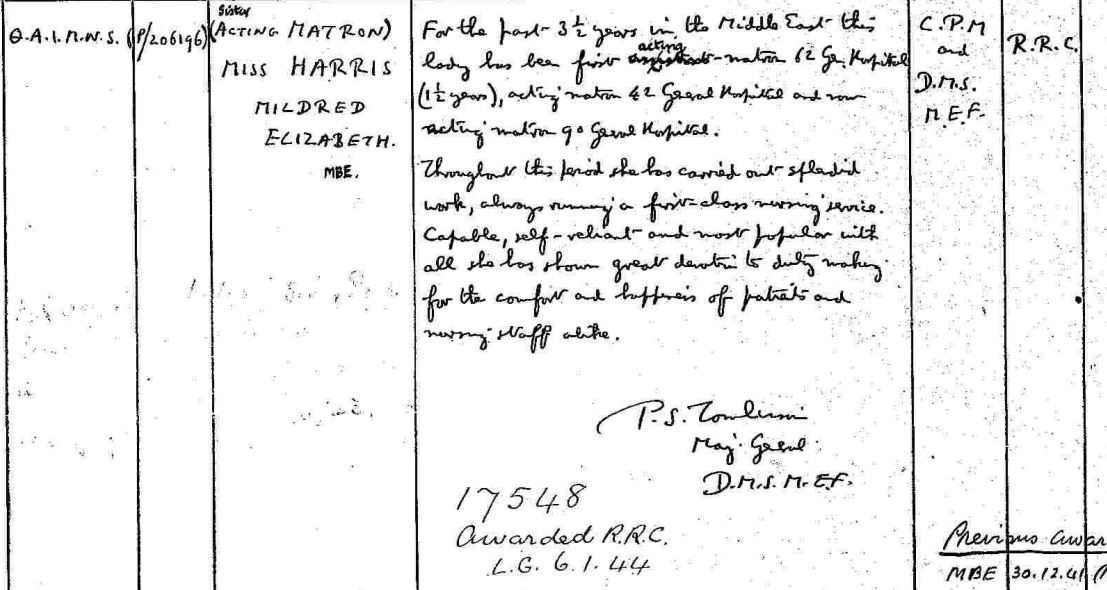 Q.A.I.M.N.S. (P/206196)
Sister
(ACTING MATRON)
MISS HARRIS
MILDRED
ELIZABETH.
MBE.
For the past 3½ years in the Middle East this
lady has been first acting -matron 62 Gen. Hospital
(1½ years), acting matron 42 General Hospital and now
acting matron 90 General Hospital.
Throughout this period she has carried out splendid
work, always running a first-class nursing service.
Capable, self-reliant and most popular with
all she has shown great devotion to duty making
for the comfort and happiness of patients and
nursing staff alike.
P.S. Tomlinson
Maj. General
D.M.S. M.E.F.
17548
Awarded R.R.C.
L.G. 6.1.44
C.P.M
and
D.M.S.
M.E.F.
R.R.C.
Previous awar
MBE 30.12.41